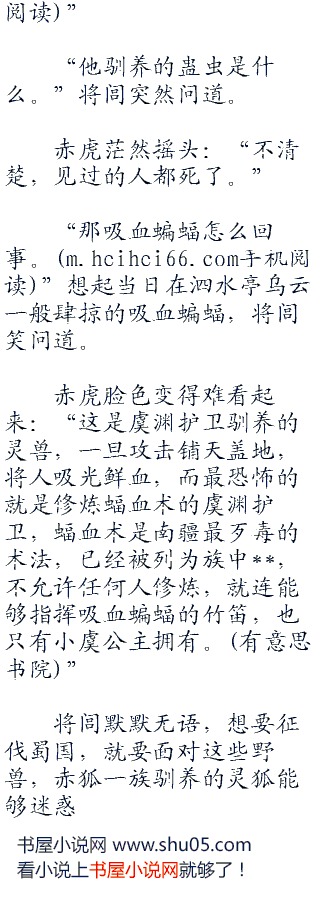 阅读)”
“他驯养的蛊虫是什
么。”将闾突然问道。
赤虎茫然摇头：“不清
楚，见过的人都死了。”
“那吸血蝙蝠怎么回
事。(m.hcihci66.com手机阅
读)”想起当日在泗水亭乌云
一般肆掠的吸血蝙蝠，将闾
笑问道。
赤虎脸色变得难看起
来：“这是虞渊护卫驯养的
灵兽，一旦攻击铺天盖地，
将人吸光鲜血，而最恐怖的
就是修炼蝠血术的虞渊护
卫，蝠血术是南疆最歹毒的
术法，已经被列为族中**，
不允许任何人修炼，就连能
够指挥吸血蝙蝠的竹笛，也
只有小虞公主拥有。(有意思
书院)”
将闾默默无语，想要征
伐蜀国，就要面对这些野
兽，赤狐一族驯养的灵狐能
够迷惑
书屋小说网 www.shu05.com
看小说上书屋小说网就够了！